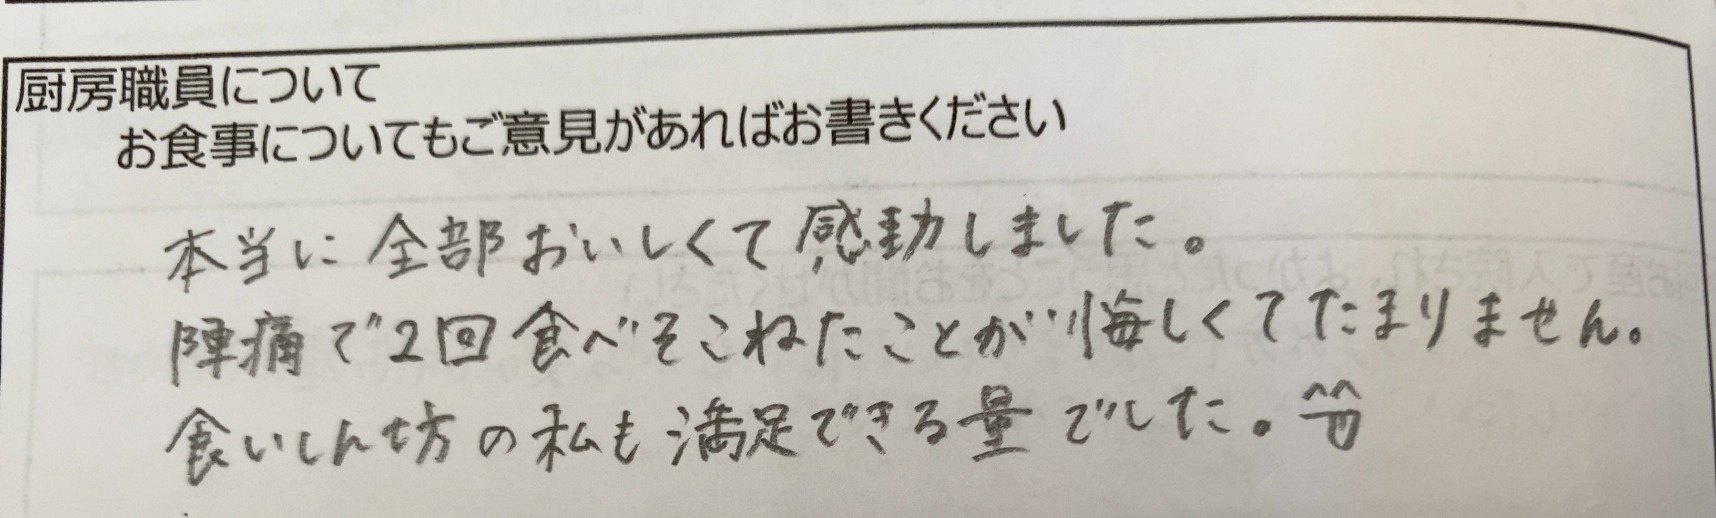 厨房職員について
お食事についてもご意見があればお書きください
本当に全部おいしくて感動しました。
陣痛で2回食べそこねたことが悔しくてたまりません。
食いしん坊の私も満足できる量でした。